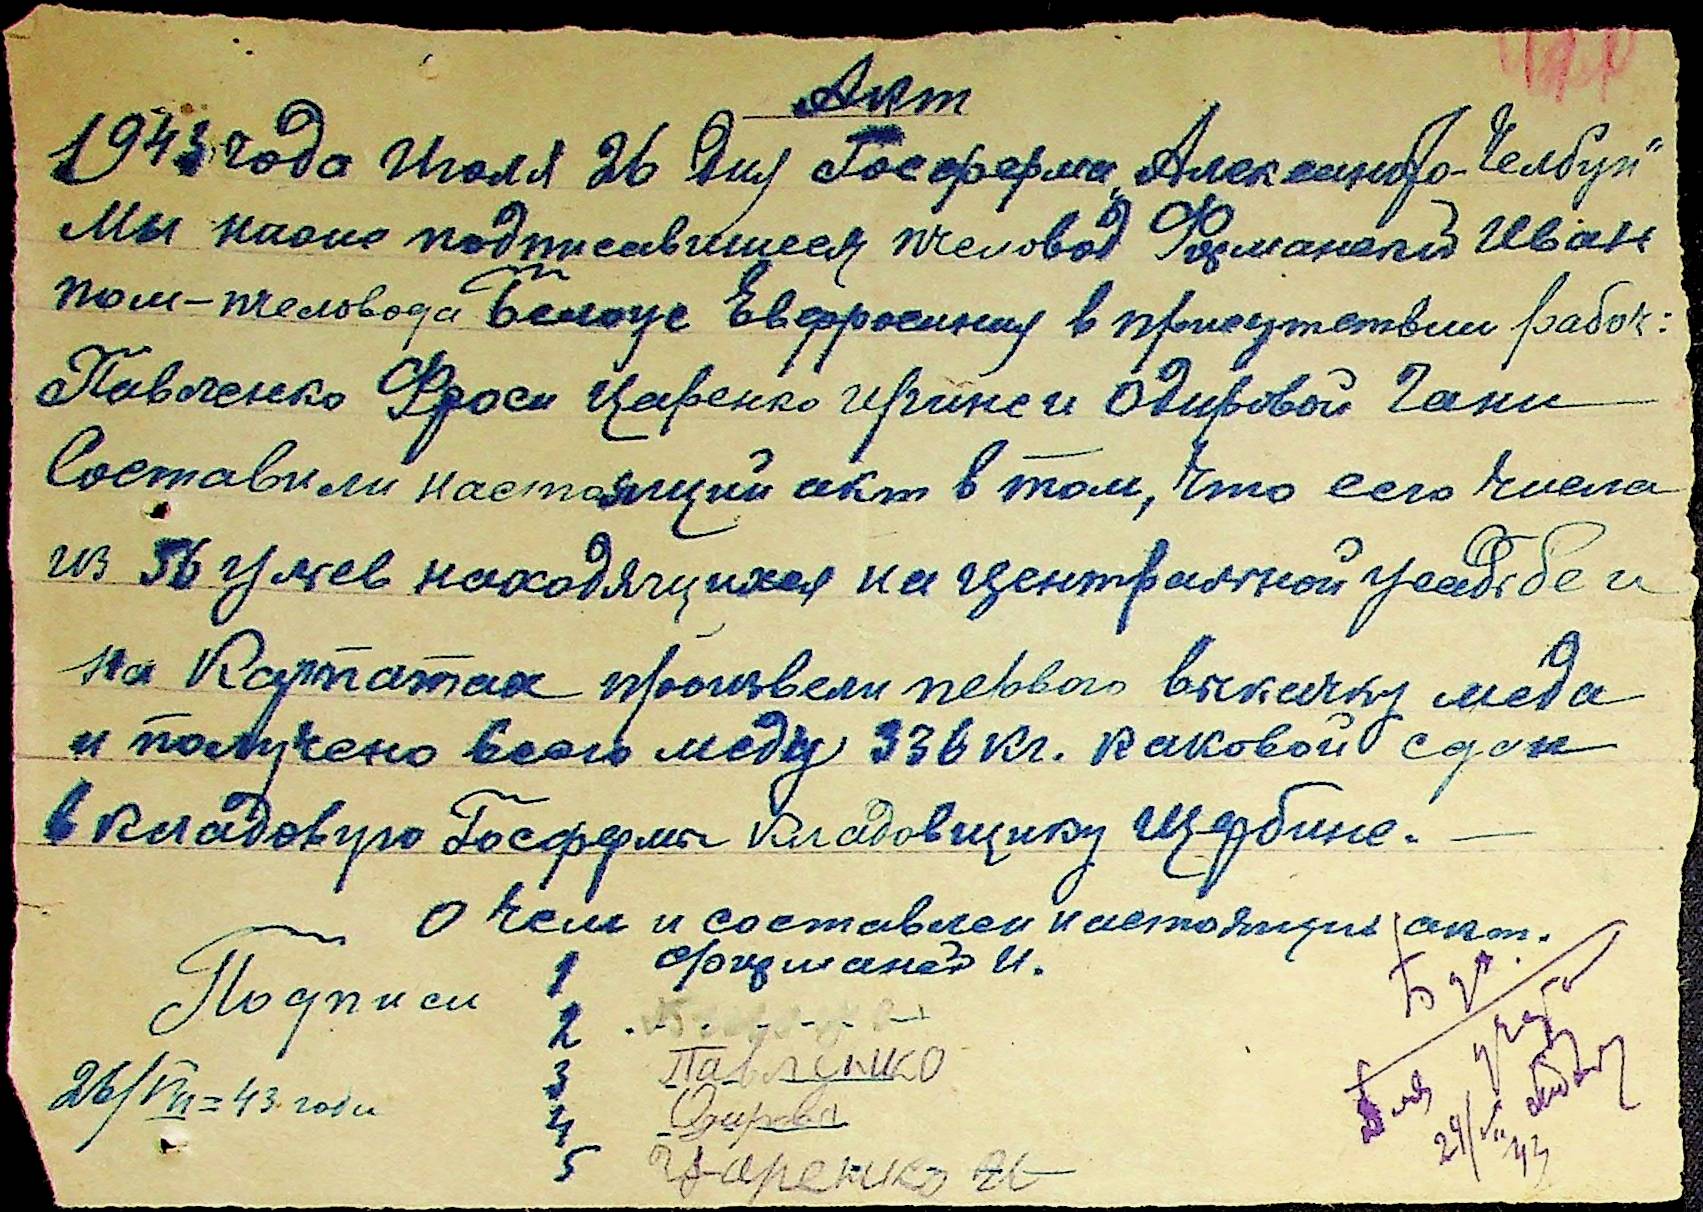 Акт
1943 года Июля 26 Дня Госферма „Александро-Челбуй"
Мы ниже подписавшиеся пчеловод Фурманский Иван
пом-пчеловода Белоус Евфросиния в присутствии рабоч:
Павленко Фроси Царенко Ирине и Одировой Гани
Составили настоящий акт в том, что сего числа
из 56 ульев находящихся на центральной усадьбе и
на Карпатах произвели первого выкачку меда
и получено всего меду 336 кг. каковой сдан
в кладовую Госфермы кладовщику Щербине. —
О чем и составлен настоящий акт.
Подписи 1 И.
2
3 Павленко
4
5 Царенко И
26/VII=43 года
Бух.
Для учета
29/VII 43